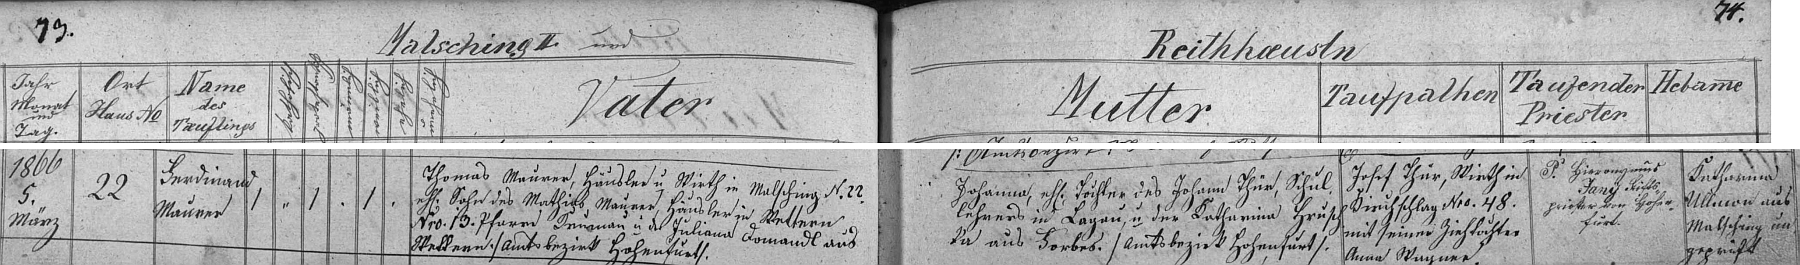 73.
Malsching II. und
Jahr
Monat
und
Tag.
Ort
Haus No
Name
des
Täuflings
Vater
74.
Reithhäusln
Mutter
Taufpathen
Taufender
Priester
Hebame
1866
5.
März
22
Ferdinand
Maurer
1 " 1 . 1 .
Thomas Maurer, Häusler u. Wirth in Malsching N. 22.
ehl. Sohn des Mathias Maurer, Häusler in Wettern
Nro. 13. Pfarre Krumau u. der Juliana Domandl aus
Wettern. / Amtsbezirk Hohenfurt /.
Johanna, ehl. Tochter des Johann Thür, Schul
lehrers in Lagau, u. der Katharina Hrusch
ka aus Forbes. / Amtsbezirk Hohenfurt /.
Josef Thür, Wirth in
Kirchschlag Nro. 48.
mit seiner Ziehtochter
Anna Wagner
P. Hieronymus
Stifts
priester von Hohen
furt.
Katharina
Ullman aus
Malsching un
geprüft